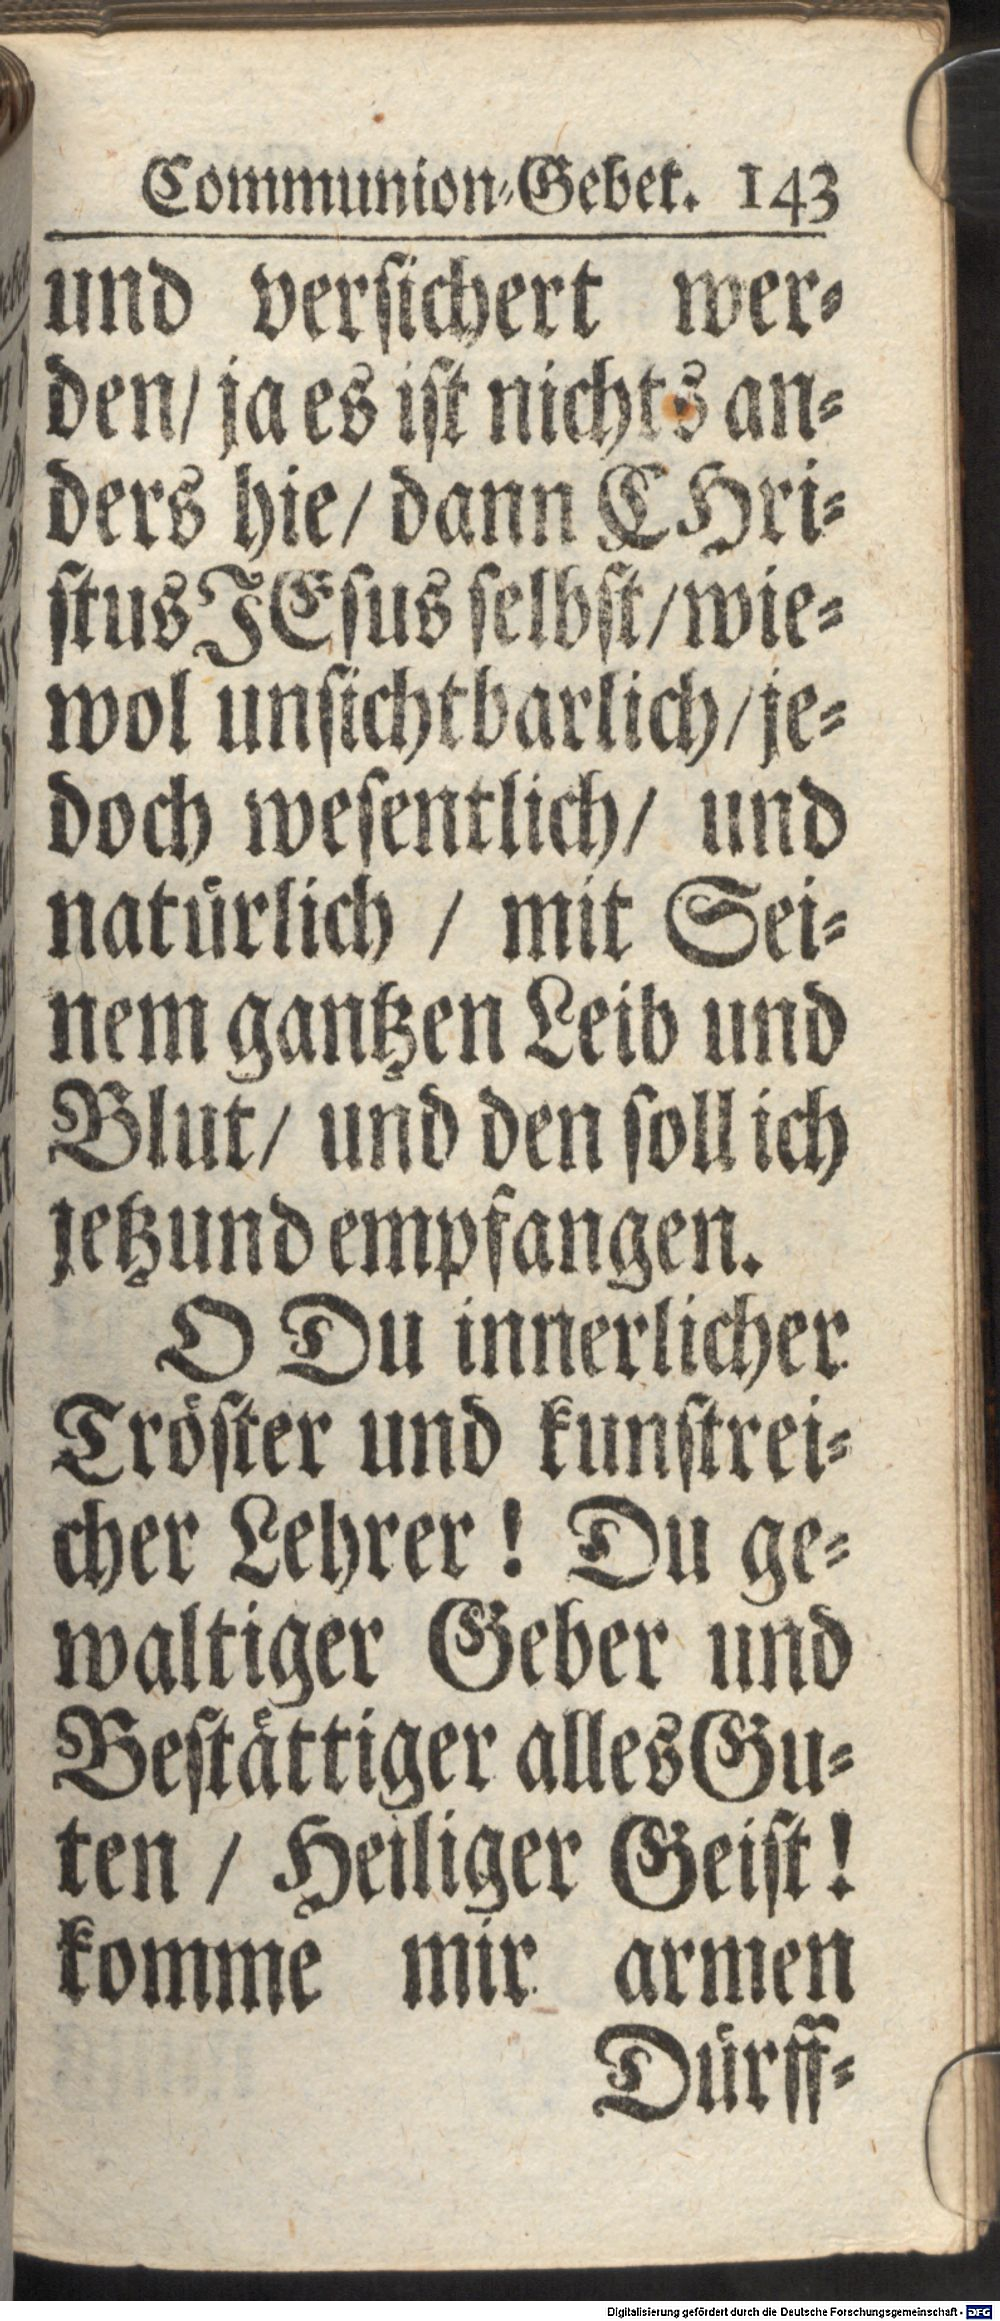 Communion-Gebet. 143
und versichert wer-
den/ ja es ist nichts an-
ders hie/ dann CHri-
stus JEsus selbst/ wie-
wol unsichtbarlich/ je-
doch wesentlich/ und
natürlich / mit Sei-
nem gantzen Leib und
Blut/ und den soll ich
jetzund empfangen.
O Du innerlicher
Tröster und kunstrei-
cher Lehrer! Du ge-
waltiger Geber und
Bestättiger alles Gu-
ten / Heiliger Geist!
komme mir armen
Dürff-
Digitalisierung gefördert durch die Deutsche Forschungsgemeinschaft - DFG